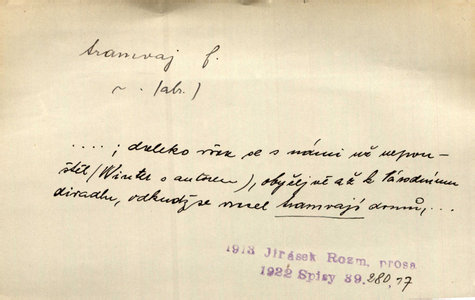 tramvaj f.
~ . (abr.)
. . . . ; daleko však se s námi už nepou-
štěl (Winter s autorem), obyčejně až k Národnímu
divadlu, odkudž se vracel tramvají domů, . . .
1913 Jirásek Rozm. prosa
1932 Spisy 39. 280, 17